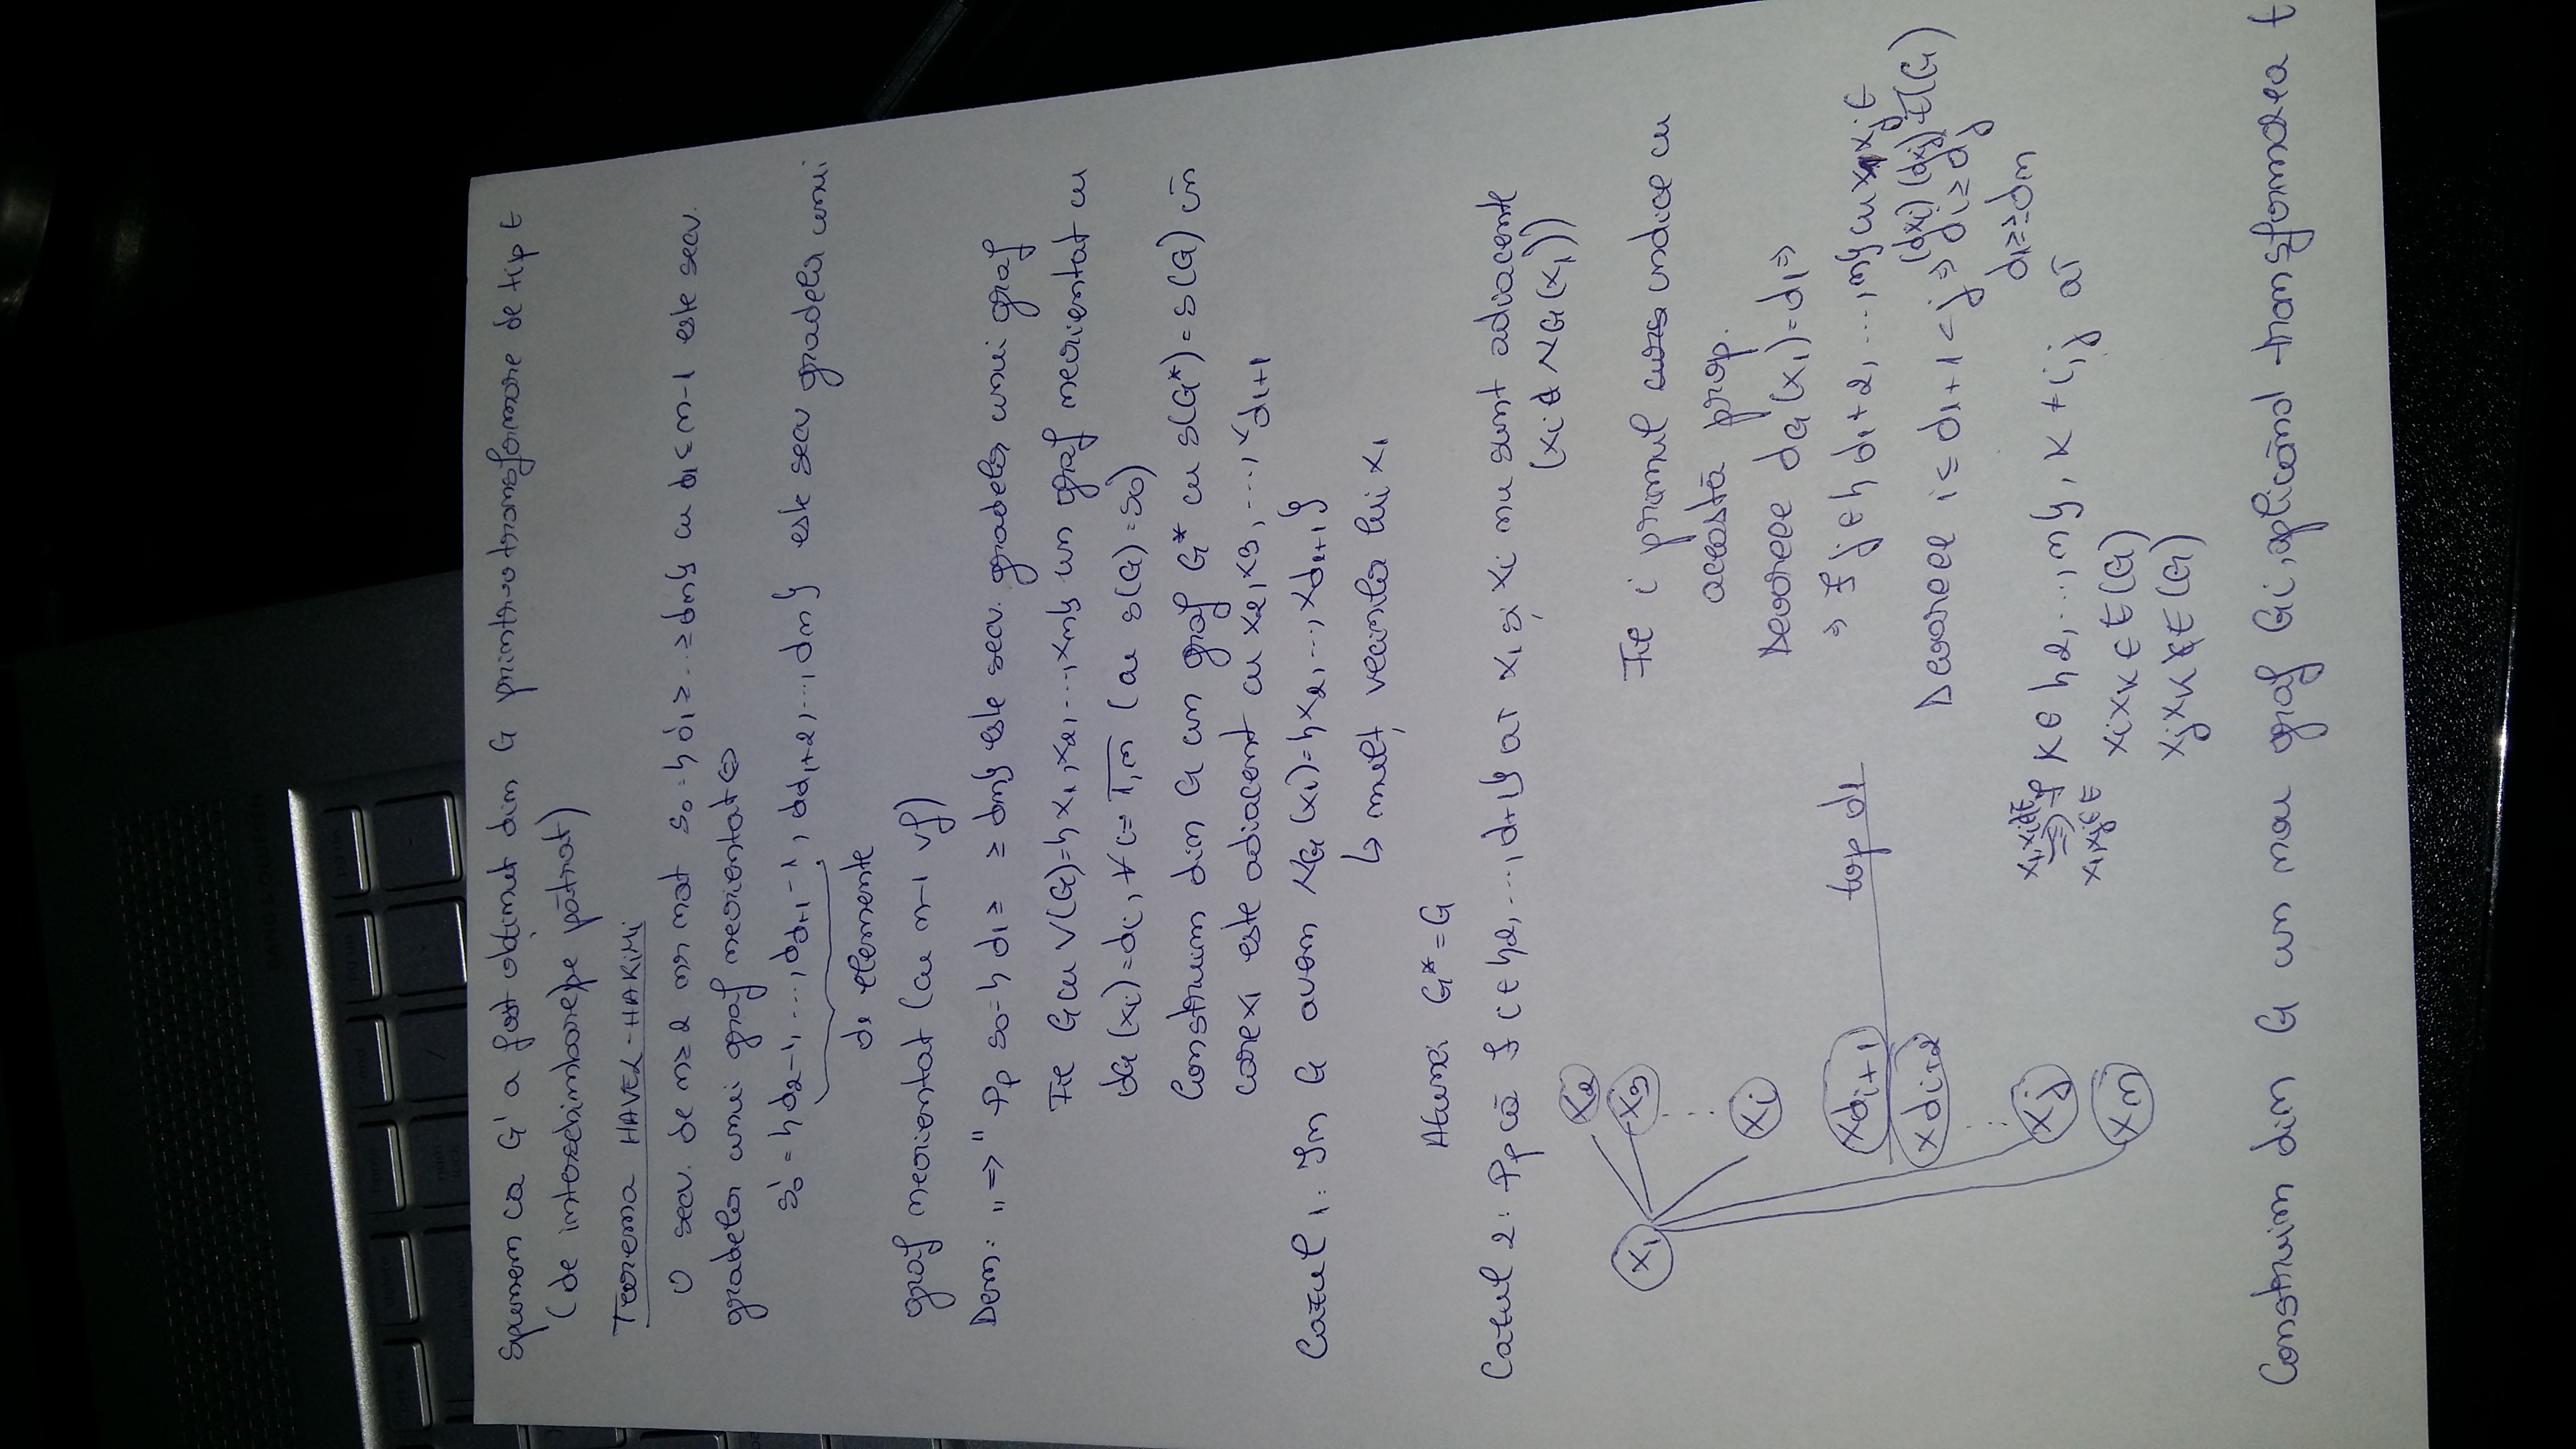 BANG & OLUFSEN
delete
home
end
pg up
pg dn
backspace
num lock
/
*
-
Spunem ca G' a fost obținut din G printr-o transformare de tip t
(de interschimbare pe pătrat)
Teorema HAVEL-HAKIMI
O secv. de n≥2 nr nat s₀={d₁≥...≥dₙ} cu d₁≤n-1 este secv.
gradelor unui graf neorientat ⇔
s₀'={d₂-1, ..., d_{d₁+1}-1, d_{d₁+2}, ..., dₙ} este secv gradelor unui
d₁ elemente
graf neorientat (cu n-1 vf)
Dem: „⇒" Pp s₀={d₁≥ ≥dₙ} este secv. gradelor unui graf
Fie G cu V(G)={x₁,x₂,...,xₙ} un graf neorientat cu
d_G(xᵢ)=dᵢ, ∀ i=1,n (cu s(G)=s₀)
Construim din G un graf G* cu s(G*)=s(G) în
care x₁ este adiacent cu x₂,x₃,...,x_{d₁+1}
Cazul 1: In G avem N_G(x₁)={x₂,...,x_{d₁+1}}
↳ mulț vecinilor lui x₁
Atunci G*=G
Cazul 2: Pp că ∃ i∈{2,...,d₁+1} aî x₁ și xᵢ nu sunt adiacente
(xᵢ∉N_G(x₁))
x₂
x₁
x₃
Fie i primul indice cu
această prop.
xᵢ
Deoarece d_G(x₁)=d₁⇒
x_{d₁+1}
top d₁
⇒ ∃ j∈{d₁+2,...,n} cu x₁xⱼ∈
E(G)
x_{d₁+2}
(dxᵢ) (dxⱼ)
Deoarece i≤d₁+1<j ⇒ dᵢ≥dⱼ
d₁≥≥dₙ
xⱼ
x₁,xᵢ∉E
⇒ ∃ k∈{2,...,n}, k≠i,j aî
x₁,xⱼ∈E
xₙ
xᵢxₖ∈E(G)
xⱼxₖ∉E(G)
Construim din G un nou graf Gᵢ, aplicând transformarea t